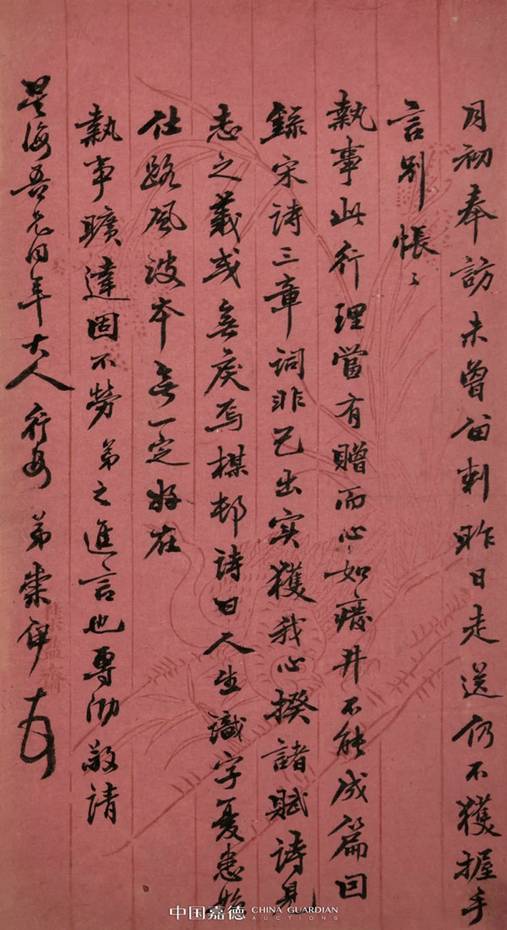 月初奉訪未曾留刺昨日走送仍不獲握手
言別悵〻
執事此行理當有贈而心如廢井不能成篇回
錄宋詩三章詞非己出实獲我心揆諸賦詩見
志之義或無戾焉楳邨詩曰人生識字憂患始
仕路風波本無一定好在
執事曠達固不勞弟之進言也專泐敬請
星海吾兄同年大人行安 弟崇伊
中国嘉德 CHINA GUARDIAN
AUCTIONS